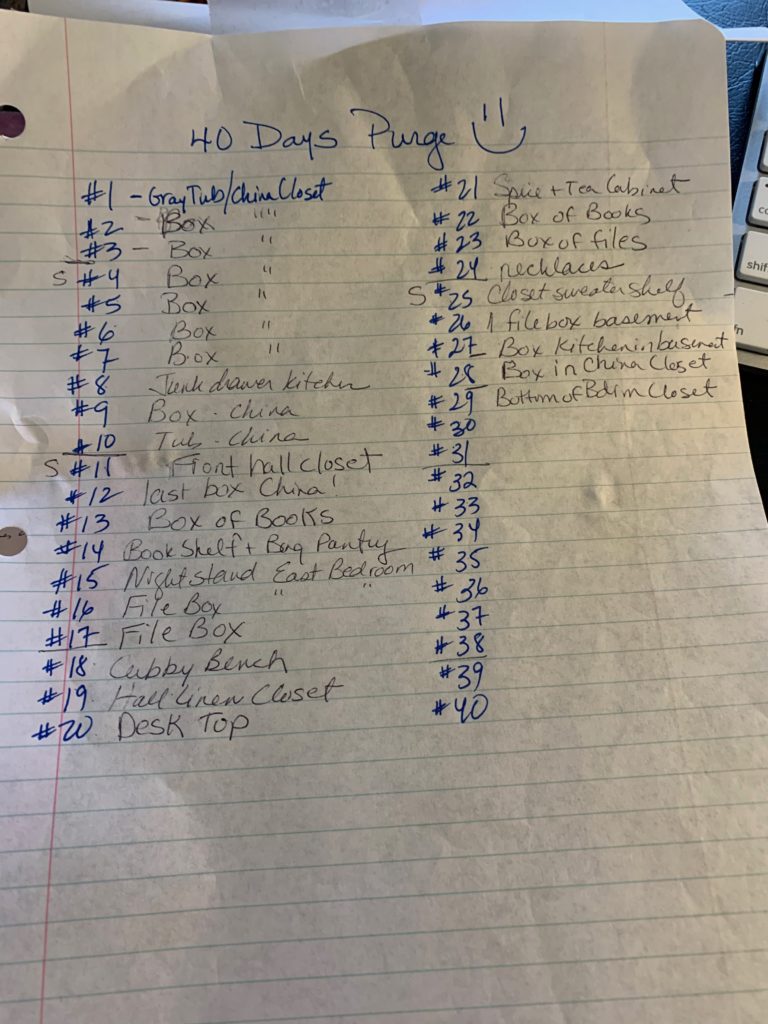 40 Days Purge
#1 - Gray Tub/China Closet
#2 - Box """
#3 - Box "
S #4 Box "
#5 Box "
#6 Box "
#7 Box "
#8 Junk drawer kitchen
#9 Box - China
#10 Tub - China
S #11 Front hall closet
#12 last box China!
#13 Box of Books
#14 Book Shelf + Bag Pantry
#15 Nightstand East Bedroom
#16 File Box " "
#17 File Box
#18 Cubby Bench
#19 Hall Linen Closet
#20 Desk Top
#21 Spice + Tea Cabinet
#22 Box of Books
#23 Box of files
#24 necklaces
S #25 Closet sweater shelf
#26 1 file box basement
#27 Box Kitchen in basement
#28 Box in China Closet
#29 Bottom of Bdrm Closet
#30
#31
#32
#33
#34
#35
#36
#37
#38
#39
#40
shif